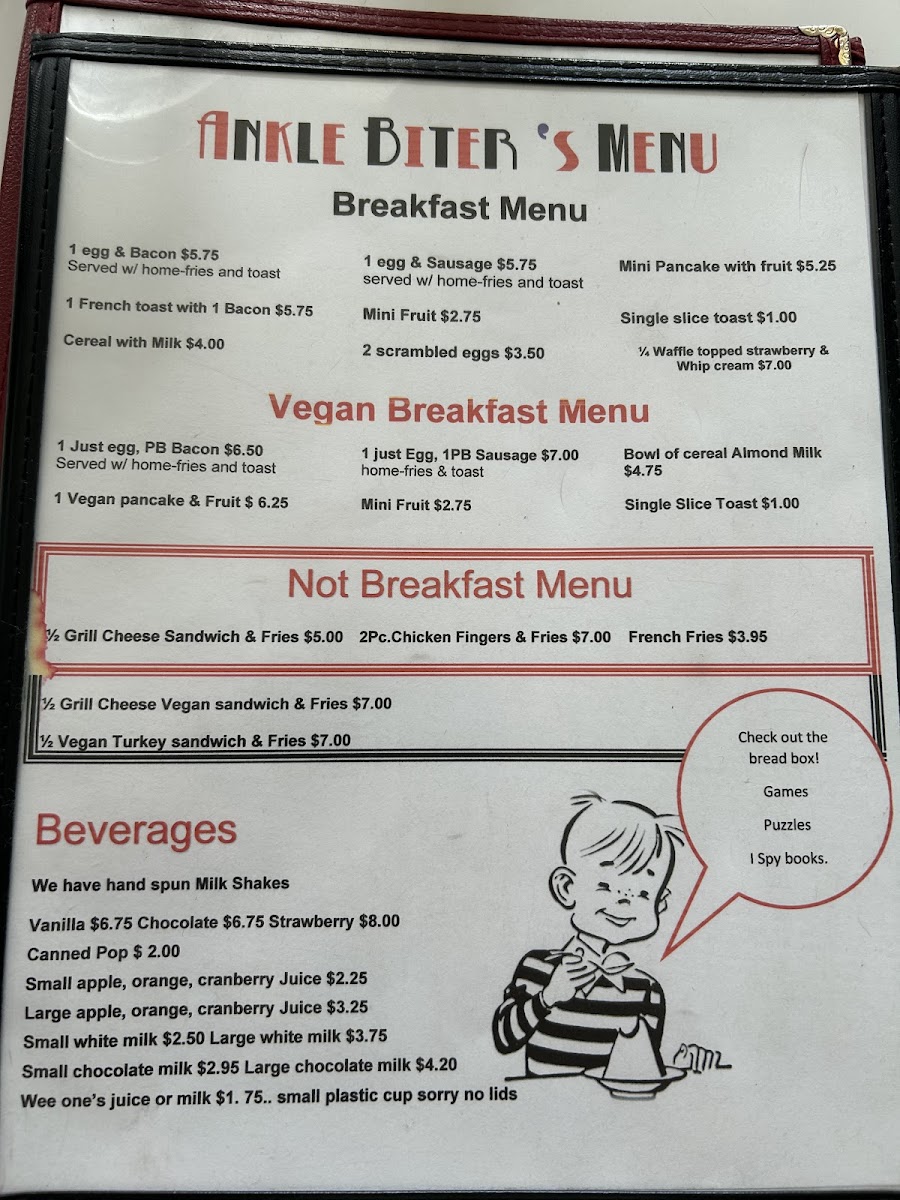 ANKLE BITER 'S MENU
Breakfast Menu
1 egg & Bacon $5.75
Served w/ home-fries and toast
1 French toast with 1 Bacon $5.75
Cereal with Milk $4.00
1 egg & Sausage $5.75
served w/ home-fries and toast
Mini Fruit $2.75
2 scrambled eggs $3.50
Mini Pancake with fruit $5.25
Single slice toast $1.00
¼ Waffle topped strawberry &
Whip cream $7.00
Vegan Breakfast Menu
1 Just egg, PB Bacon $6.50
Served w/ home-fries and toast
1 Vegan pancake & Fruit $ 6.25
1 just Egg, 1PB Sausage $7.00
home-fries & toast
Mini Fruit $2.75
Bowl of cereal Almond Milk
$4.75
Single Slice Toast $1.00
Not Breakfast Menu
½ Grill Cheese Sandwich & Fries $5.00 2Pc.Chicken Fingers & Fries $7.00 French Fries $3.95
½ Grill Cheese Vegan sandwich & Fries $7.00
½ Vegan Turkey sandwich & Fries $7.00
Check out the
bread box!
Games
Puzzles
I Spy books.
Beverages
We have hand spun Milk Shakes
Vanilla $6.75 Chocolate $6.75 Strawberry $8.00
Canned Pop $ 2.00
Small apple, orange, cranberry Juice $2.25
Large apple, orange, cranberry Juice $3.25
Small white milk $2.50 Large white milk $3.75
Small chocolate milk $2.95 Large chocolate milk $4.20
Wee one's juice or milk $1. 75.. small plastic cup sorry no lids